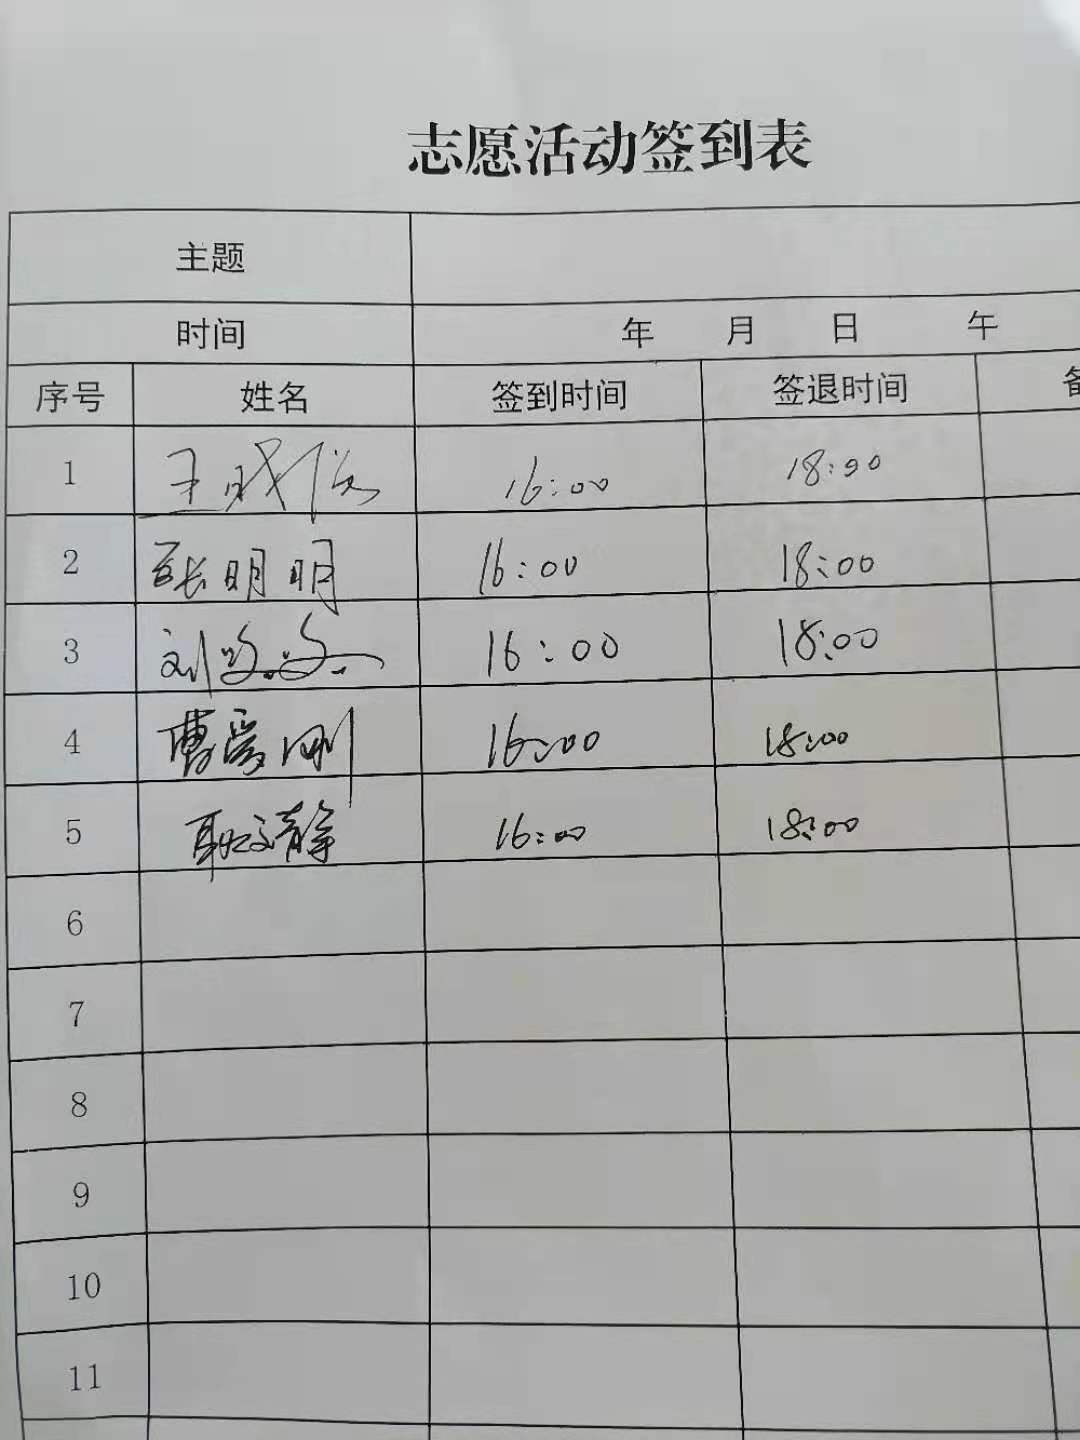 志愿活动签到表
主题
时间 年 月 日 午
序号 姓名 签到时间 签退时间 备
1 王 16:00 18:00
2 张明明 16:00 18:00
3 刘 16:00 18:00
4 曹爱刚 16:00 18:00
5 耿文静 16:00 18:00
6
7
8
9
10
11